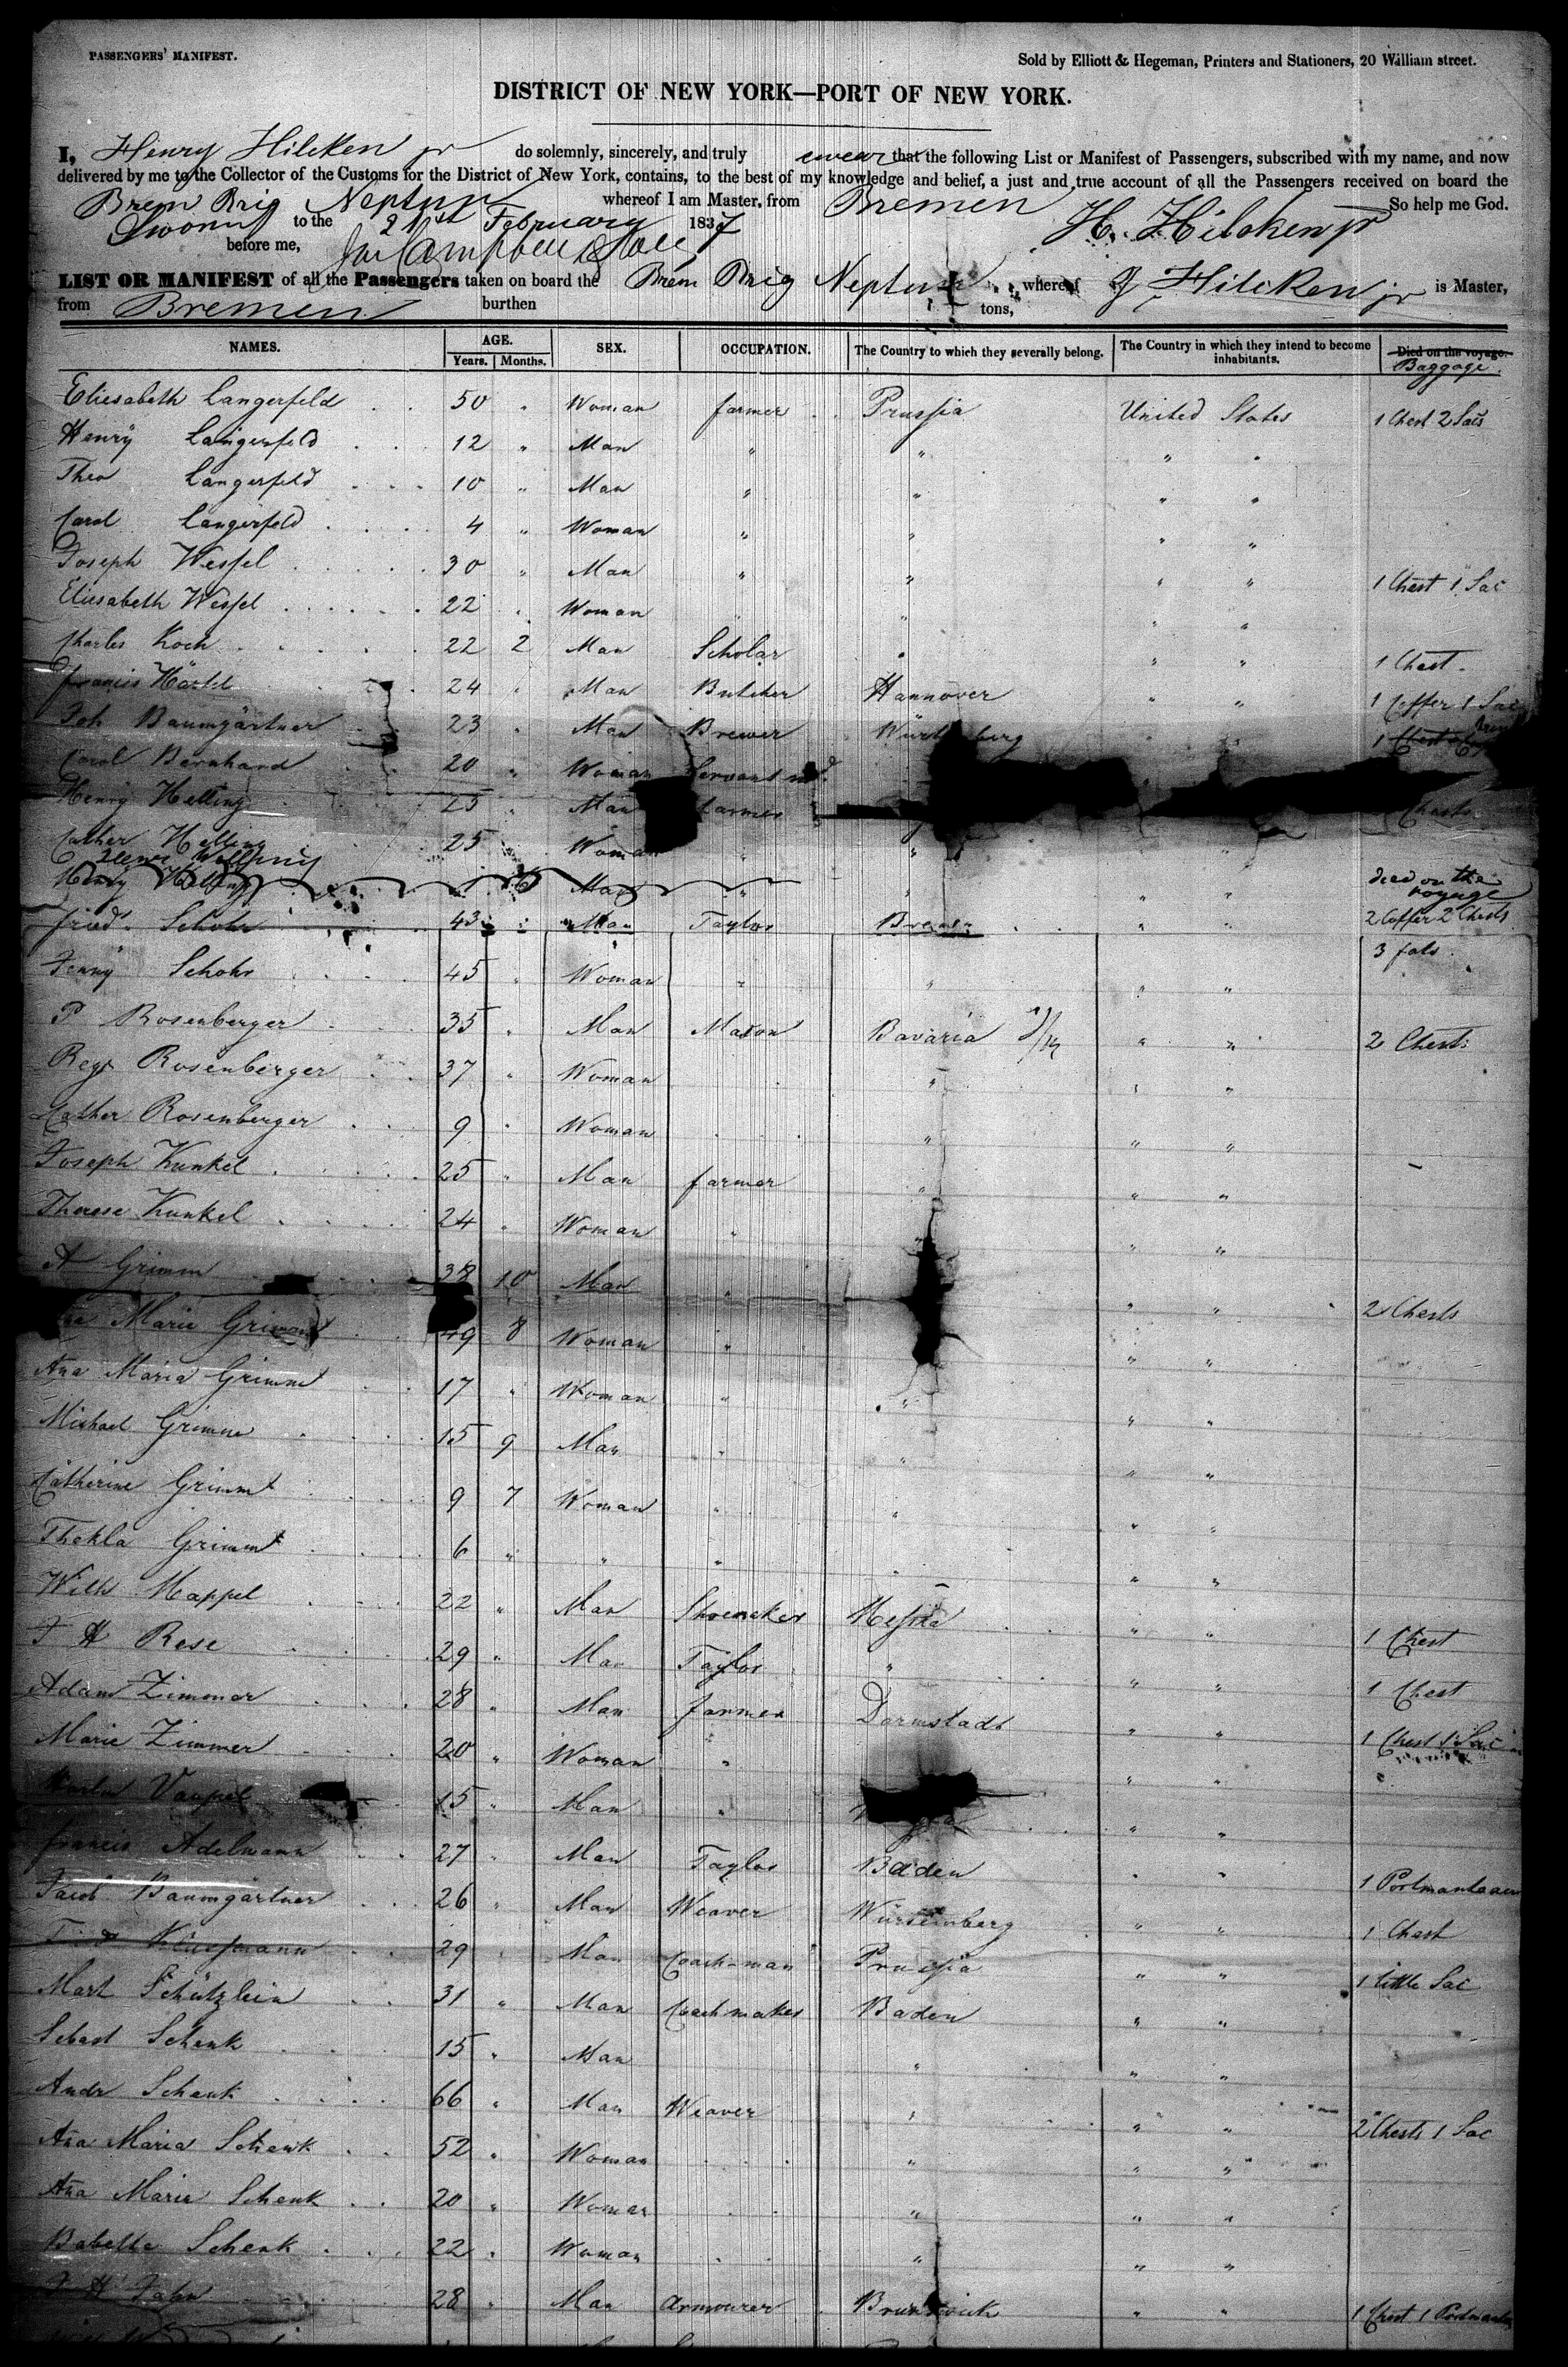 PASSENGERS' MANIFEST.
Sold by Elliott & Hegeman, Printers and Stationers, 20 William street.
DISTRICT OF NEW YORK—PORT OF NEW YORK.
I, Henry Hilcken jr do solemnly, sincerely, and truly swear that the following List or Manifest of Passengers, subscribed with my name, and now
delivered by me to the Collector of the Customs for the District of New York, contains, to the best of my knowledge and belief, a just and true account of all the Passengers received on board the
Brem Brig Neptun whereof I am Master, from Bremen So help me God.
Sworn to the 21st February 1837 H. Hilcken jr
before me,
LIST OR MANIFEST of all the Passengers taken on board the Brem Brig Neptun whereof Hilcken jr is Master,
from Bremen burthen tons,
NAMES. AGE. SEX. OCCUPATION. The Country to which they severally belong. The Country in which they intend to become inhabitants. Died on the voyage.
Years. Months. Baggage.
Eliesabeth Langerfeld 50 " Woman farmer Prussia United States 1 Chest 2 Sacs
Henry Langerfeld 12 " Man " " " "
Theo Langerfeld 10 " Man " " " "
Carol Langerfeld 4 " Woman " " " "
Joseph Wessel 30 " Man " " " " 1 Chest 1 Sac
Eliesabeth Wessel 22 " Woman " " "
Charles Koch 22 2 Man Scholar " " " 1 Chest
Francis 24 " Man Butcher Hannover " " 1 Coffer 1 Sac
Joh Baumgärtner 23 " Man Brewer " " 1 Chest
Carol Bernhard 20 " Woman Servant
Henry Helling 25 " Man farmer Chests
Cather Helling 25 Woman " " " "
Henry Helling 6 Man " " " " died on the voyage
fried. Schohr 43 " Man Taylor Bremen " " 2 Coffer 2 Chests
3 fats
Jenny Schohr 45 " Woman " " " "
P Rosenberger 35 " Man Mason Bavaria " " 2 Chests
Reg Rosenberger 37 " Woman " " "
Cather Rosenberger 9 " Woman " " "
Joseph Kunkel 25 " Man farmer " " "
Therese Kunkel 24 " Woman " " " "
A Grimm 38 10 Man " " " 2 Chests
Marie Grimm 49 8 Woman " " "
Ana Maria Grimm 17 " Woman " " " "
Michael Grimm 15 9 Man " " " "
Catherine Grimm 9 7 Woman " " " "
Thekla Grimm 6 " " " " " "
Wilh Mappel 22 " Man Shoemaker Hessia " " 1 Chest
J H Rese 29 " Man Taylor " " " 1 Chest
Adam Zimmer 28 " Man farmer Darmstadt " " 1 Chest 1 Sac
Marie Zimmer 20 " Woman " " "
Vaupel 15 " Man " " "
francis Adelmann 27 " Man Taylor Baden " " 1 Portmanteau
Jacob Baumgärtner 26 " Man Weaver Würtemberg " " 1 Chest
29 " Man Coach-man Prussia " " 1 little Sac
Mart Schützlein 31 " Man Coachmaker Baden " "
Sebast Schenk 15 " Man " " "
Andr Schenk 66 " Man Weaver " " " 2 Chests 1 Sac
Ana Maria Schenk 52 " Woman " " "
Ana Marie Schenk 20 " Woman " " "
Babette Schenk 22 " Woman " " "
J H Jahn 28 " Man Armourer Brunswick " " 1 Chest 1 Portmanteau